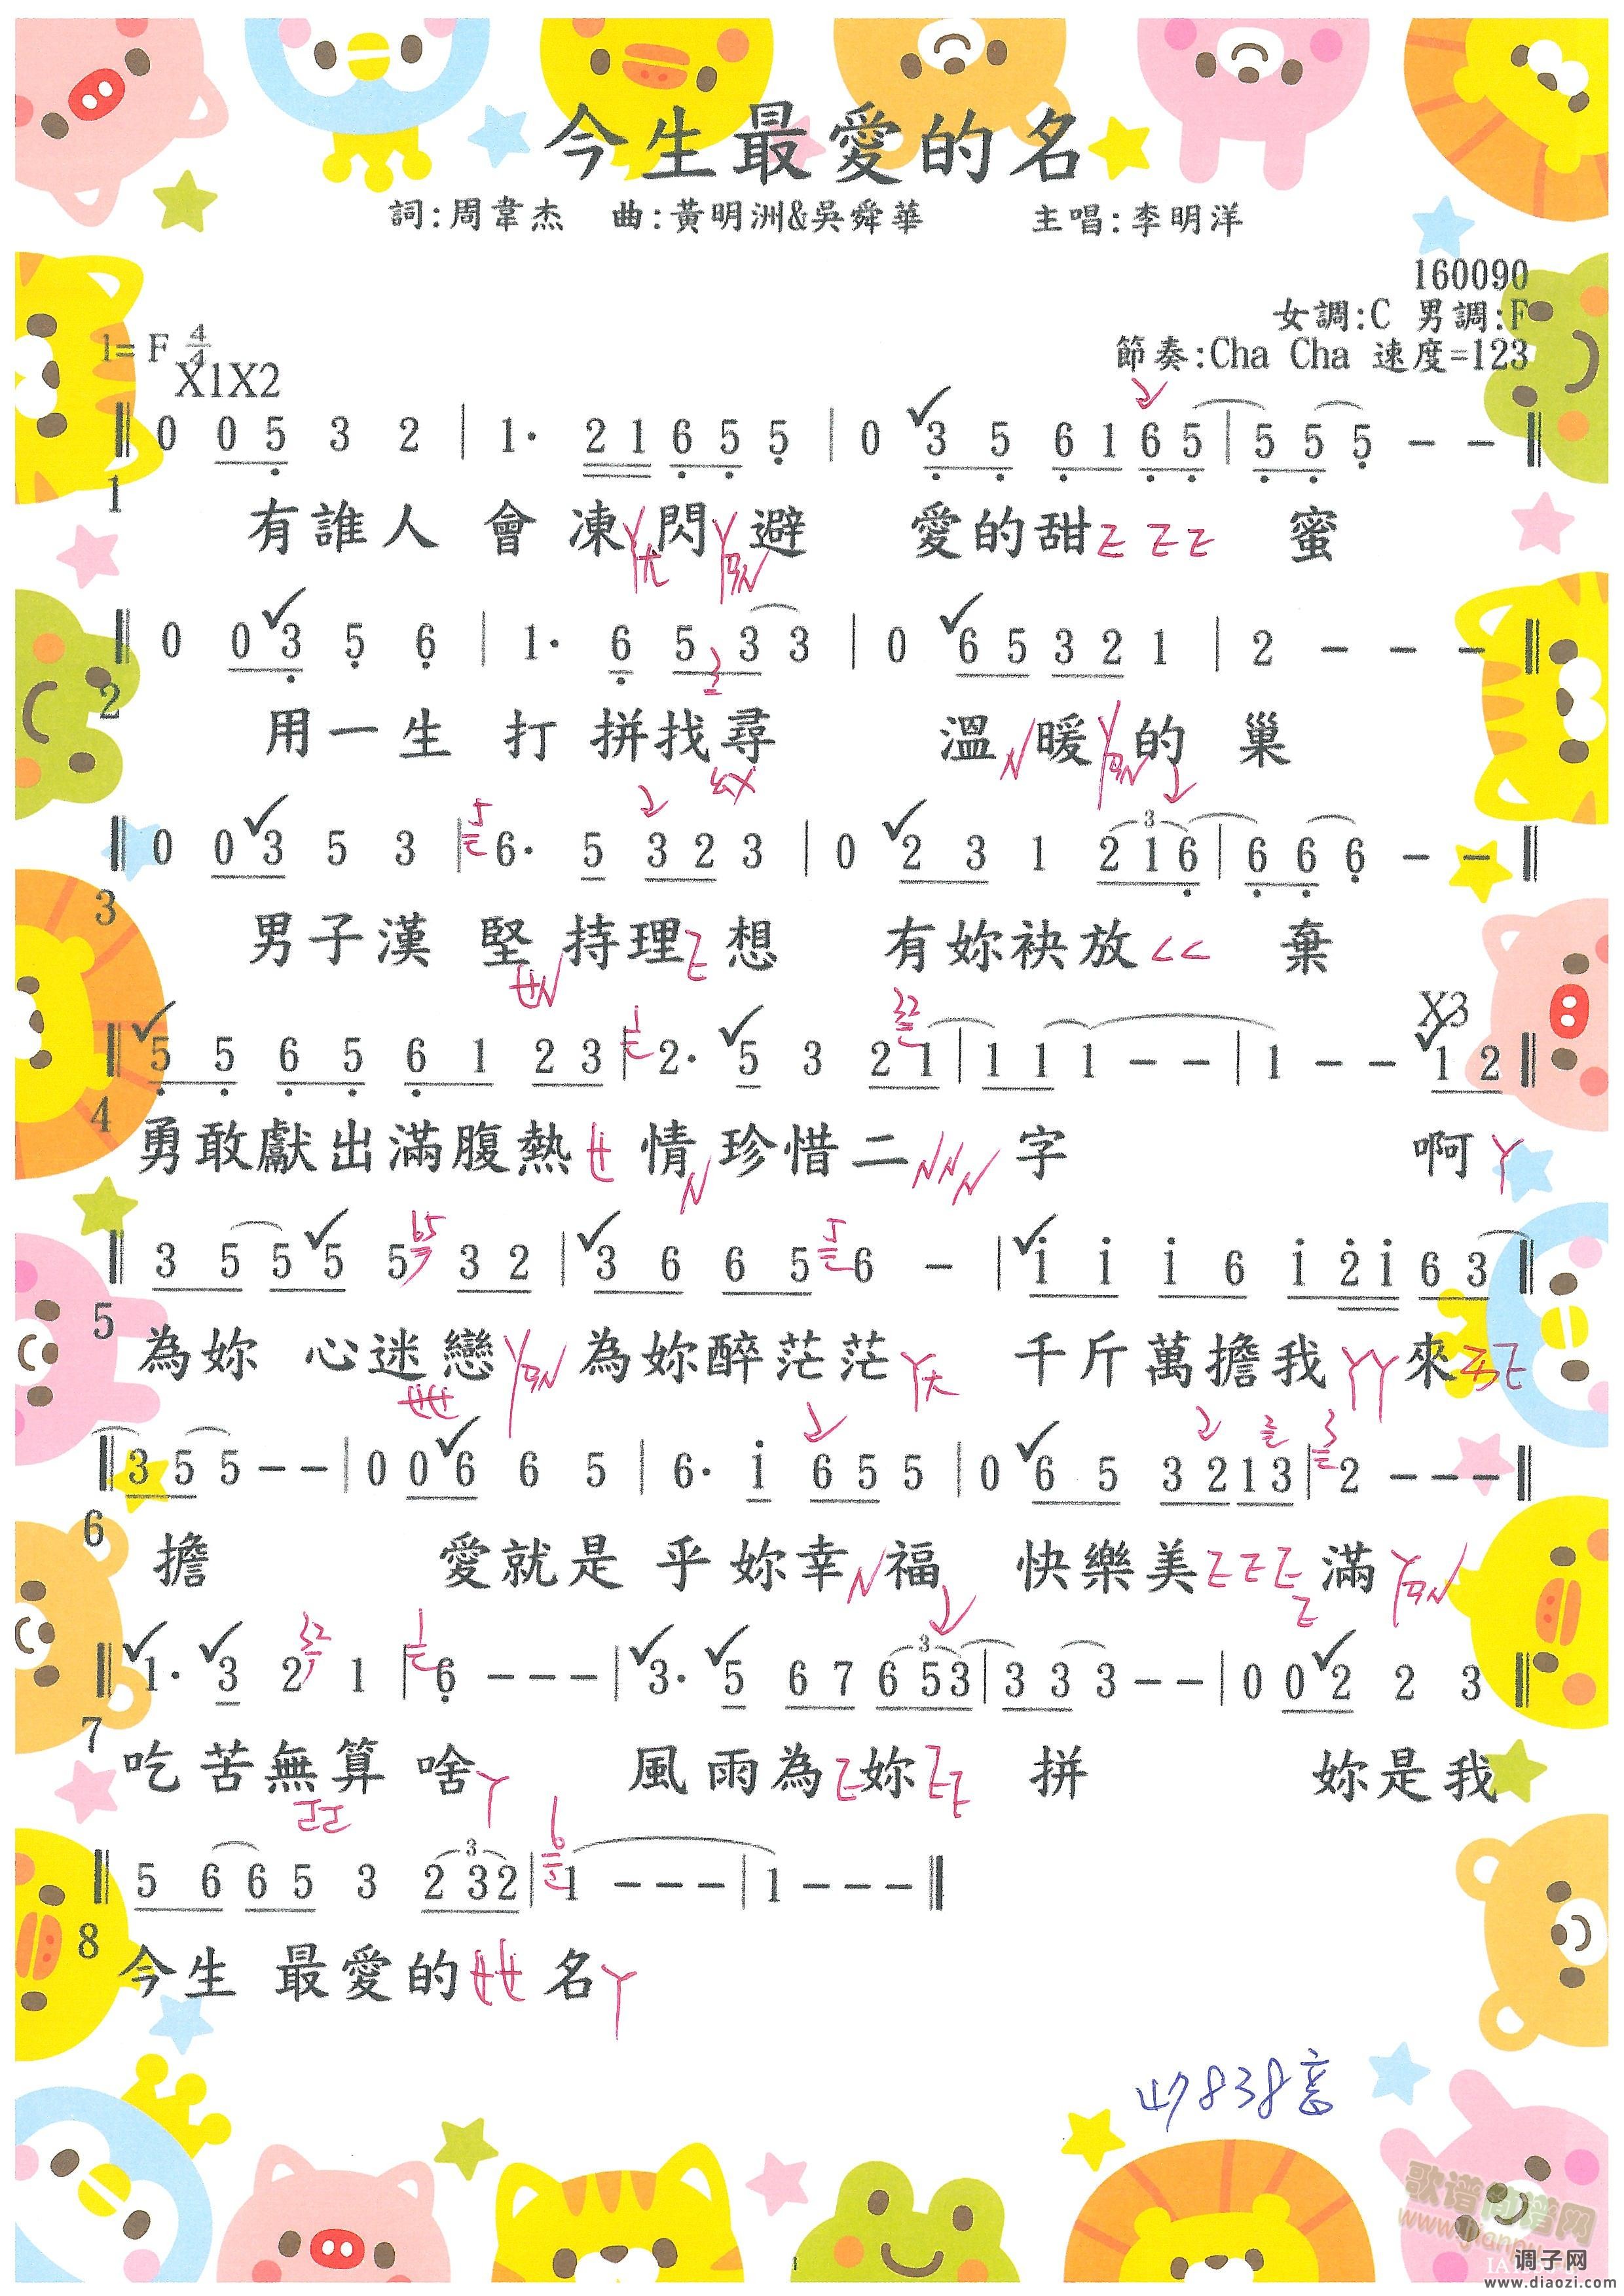 今生最愛的名
詞:周韋杰 曲:黃明洲&吳舜華 主唱:李明洋
160090
女調:C 男調:F
1= F 4/4
節奏:Cha Cha 速度=123
X1X2
‖ 0 0 5 3 2 | 1· 2 1 6 5 5 | 0 3 5 6 1 6 5 | 5 5 5 - - ‖
1
有誰人 會 凍ㄚ閃ㄚ避 愛的甜ㄛ ㄛㄛ 蜜
ㄤ ㄢ
‖ 0 0 3 5 6 | 1· 6 5 3 3 | 0 6 5 3 2 1 | 2 - - - ‖
3
2
用一生 打 拼找尋 溫 暖ㄚ的 巢
‖ 0 0 3 5 3 | 5 6· 5 3 2 3 | 0 2 3 1 2 1 6 | 6 6 6 - - ‖
3
3
男子漢 堅 持理ㄛ想 有妳袂放ㄑㄑ 棄
ㄝ
X3
‖ 5 5 6 5 6 1 2 3 | 1 2· 5 3 2 32 1 | 1 1 1 - - | 1 - - 1 2 ‖
4
勇敢獻出滿腹熱ㄝ 情 珍惜二 字 啊ㄚ
‖ 3 5 5 5 5 65 3 2 | 3 6 6 5 5 6 - | i i i 6 i 2 i 6 3 ‖
5
為妳 心迷戀ㄚ 為妳醉茫茫ㄚ 千斤萬擔我ㄚㄚ來
ㄝㄝ
‖ 3 5 5 - - | 0 0 6 6 5 | 6· i 6 5 5 | 0 6 5 3 2 1 3 | 3 2 - - - ‖
6
擔 愛就是 乎妳幸 福 快樂美ㄛㄛㄛ滿ㄚ
‖ 1· 3 2 32 1 | 1 6 - - - | 3· 5 6 7 6 5 3 | 3 3 3 - - | 0 0 2 2 3 ‖
3
7
吃苦無算 啥ㄚ 風雨為ㄛ妳ㄛㄛ 拼 妳是我
‖ 5 6 6 5 3 2 3 2 | 6 1 - - - | 1 - - - ‖
3
8
今生 最愛的ㄝㄝ名ㄚ
1
歌谱简谱网
www.jianpu
调子网
www.diaozi.com